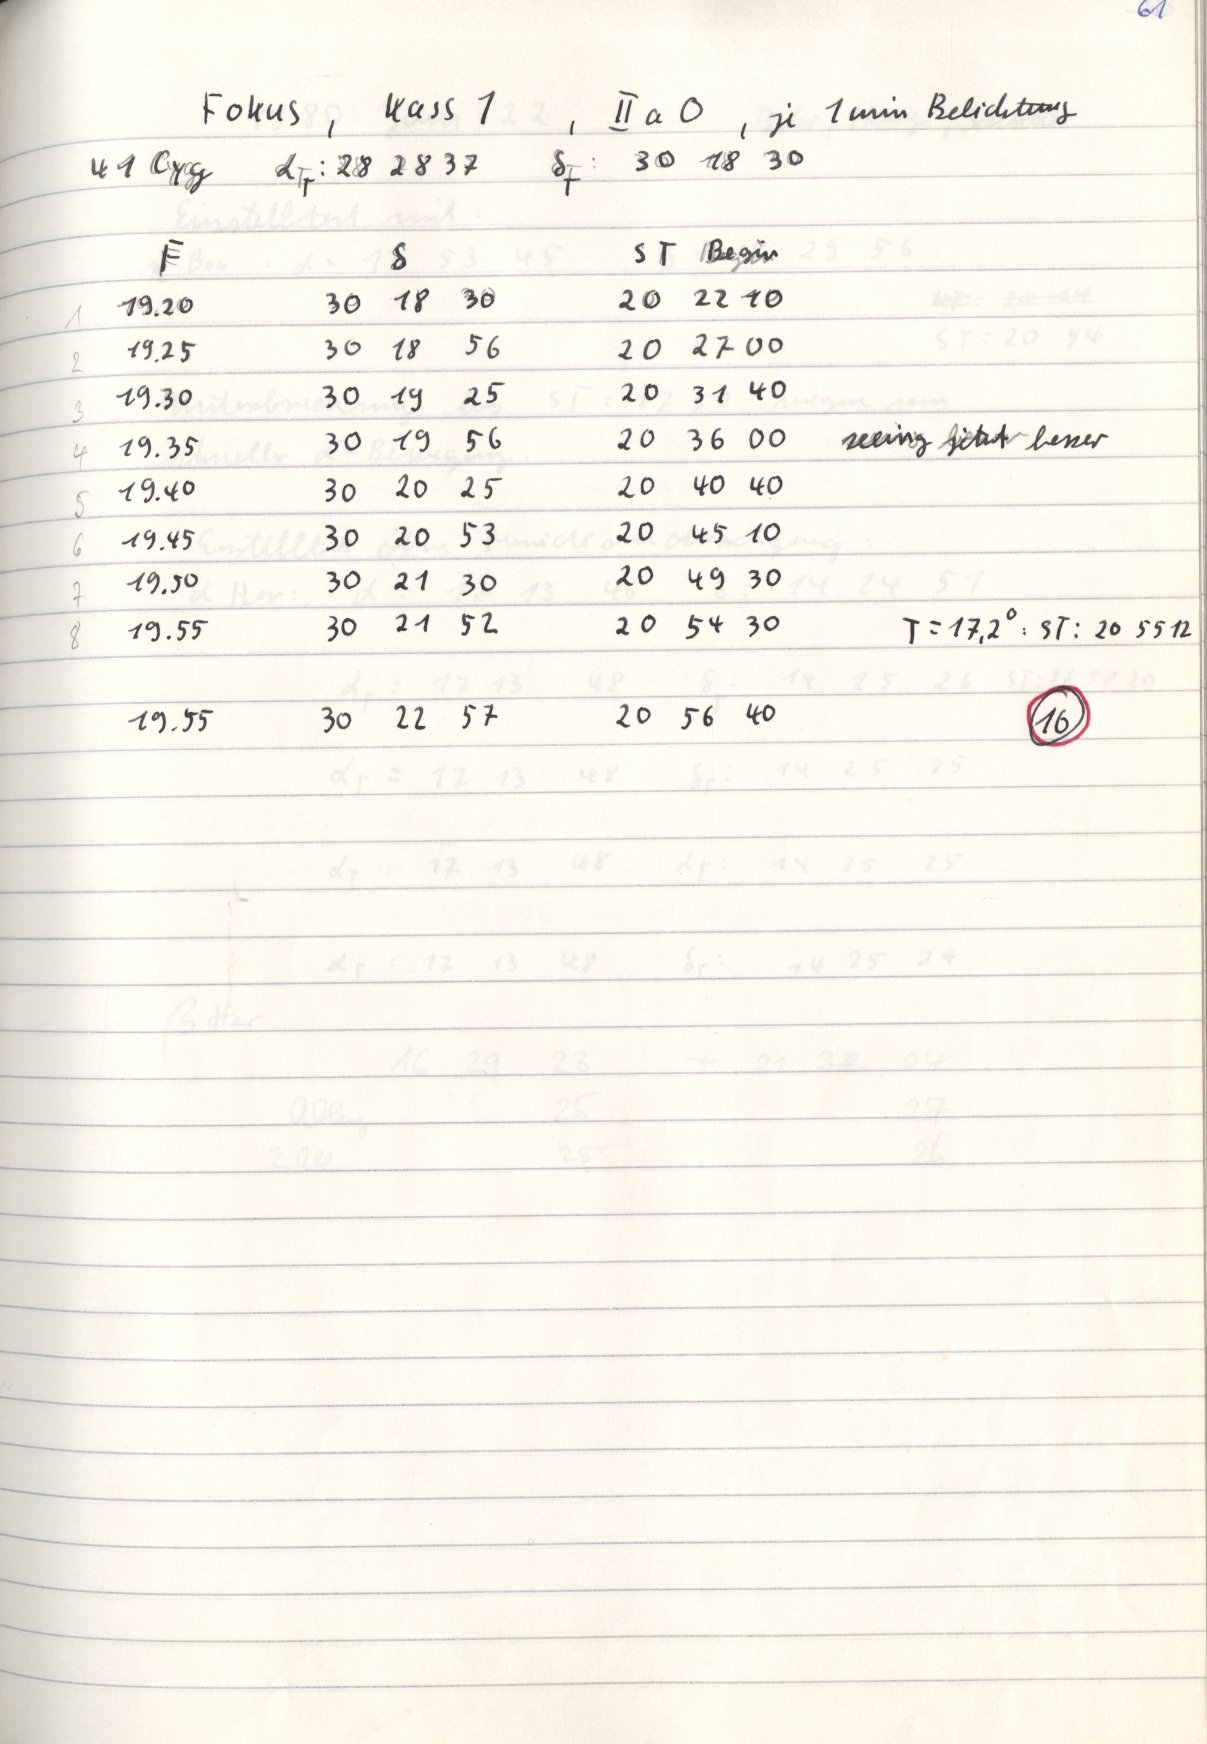 61
Fokus, Kass 1, II a O, je 1 min Belichtung
41 Cyg α_T: 28 28 37 δ_T: 30 18 30
F δ ST Begin
1 19.20 30 18 30 20 22 10
2 19.25 30 18 56 20 27 00
3 19.30 30 19 25 20 31 40
4 19.35 30 19 56 20 36 00 seeing jetzt besser
5 19.40 30 20 25 20 40 40
6 19.45 30 20 53 20 45 10
7 19.50 30 21 30 20 49 30
8 19.55 30 21 52 20 54 30 T = 17,2°: ST: 20 55 12
19.55 30 22 57 20 56 40 16